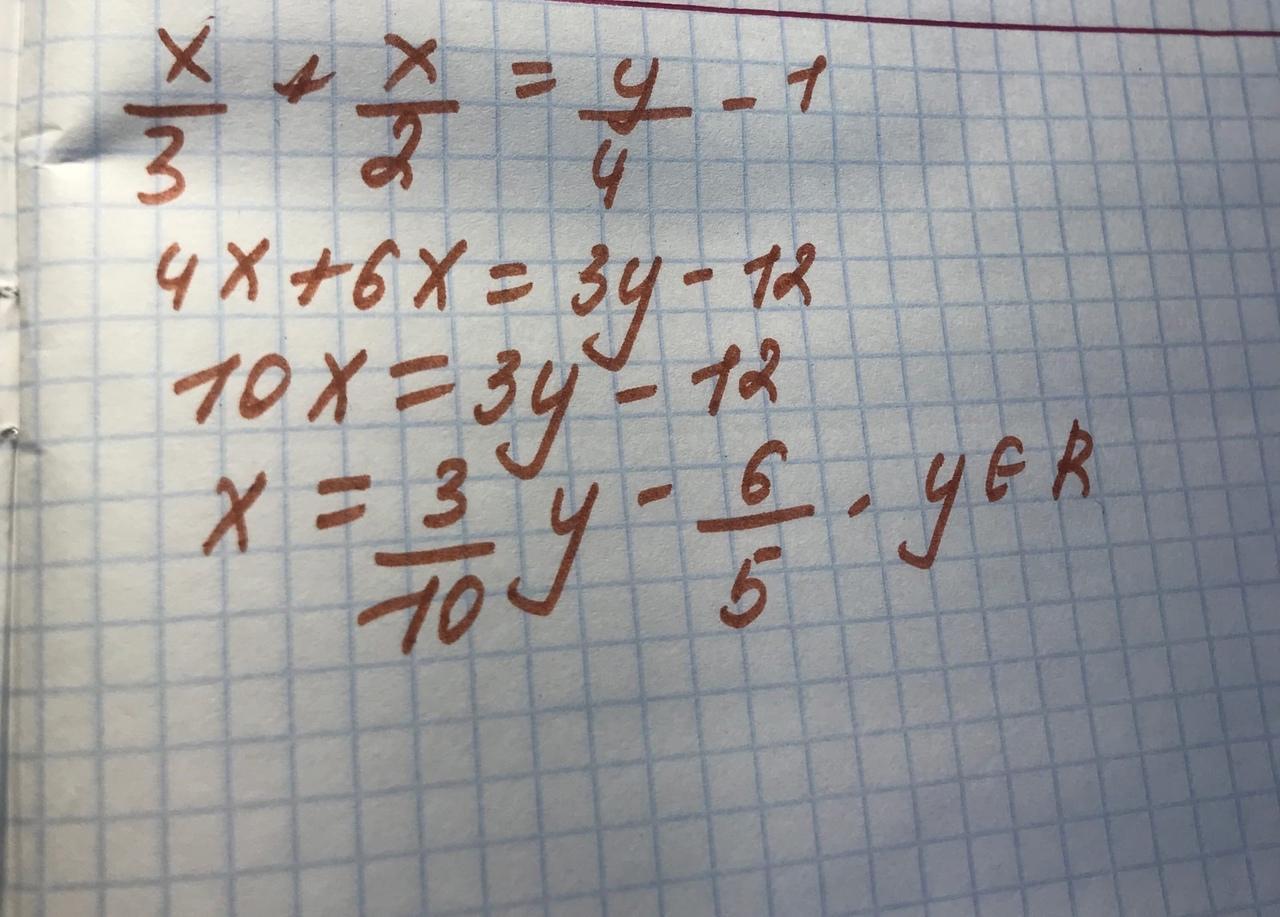 x/3 + x/2 = y/4 - 1
4x+6x = 3y - 12
10x = 3y - 12
x = 3/10 y - 6/5 . y ∈ R